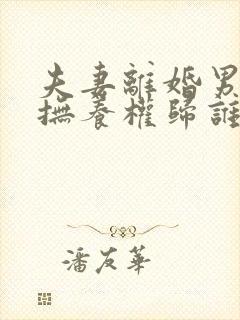 夫妻離婚男
撫養權歸誰
潘友華